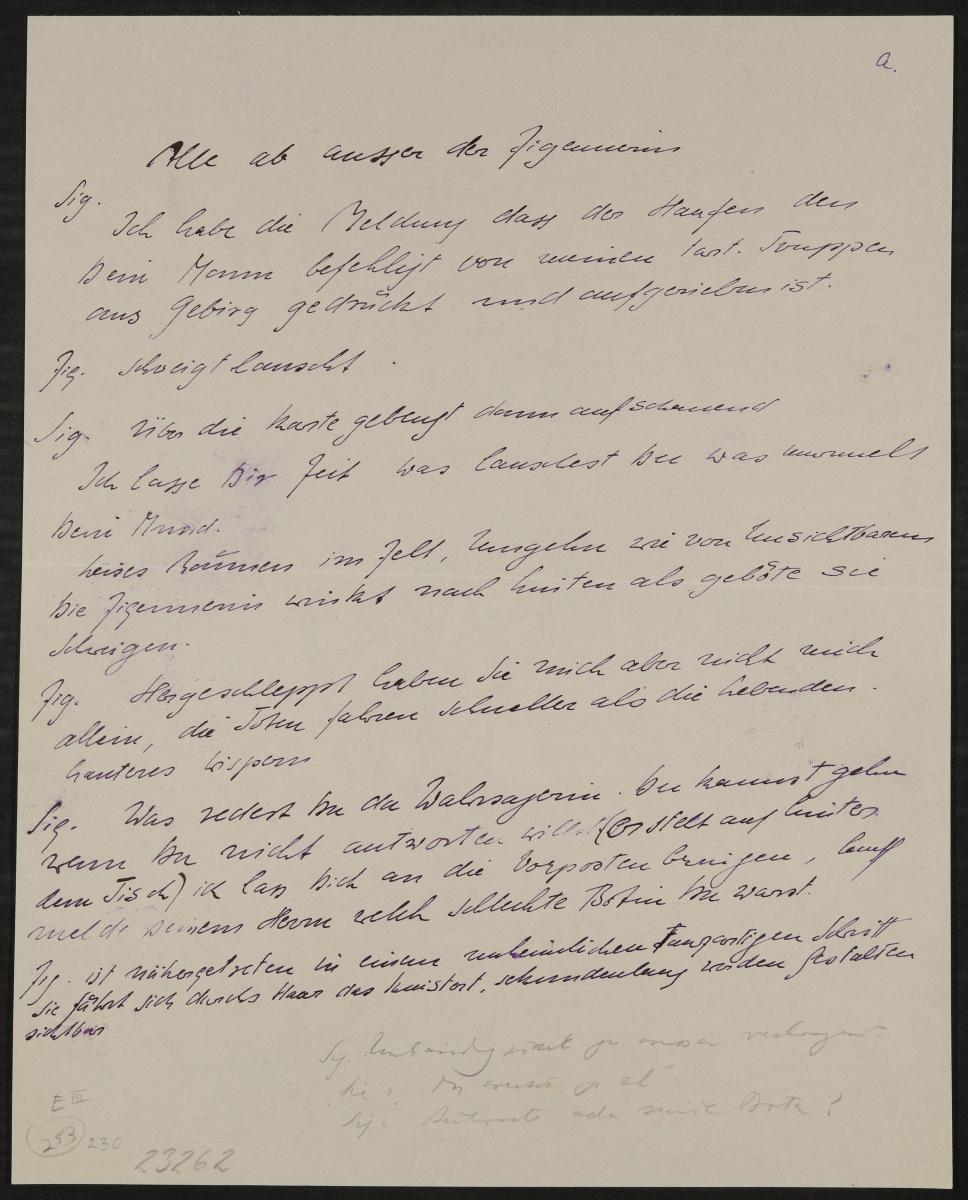 a.
Alle ab ausser der Zigeunerin
Sig.
Ich habe die Meldung dass der Haufen den
Dein Mann befehligt von meinen tart. Truppen
ans Gebirg gedrückt und aufgerieben ist.
Zig. schweigt lauscht.
Sig. über die Karte gebeugt dann aufschauend
Ich lasse Dir Zeit was lauschest Du was murmelt
Dein Mund.
Leises Raunen im Zelt, Umgehn wie von Unsichtbarem
Die Zigeunerin winkt nach hinten als geböte sie
Schweigen.
Zig. Hergeschleppt haben Sie mich aber nicht mich
allein, die Toten fahren schneller als die Lebenden.
Lauteres Wispern
Sig. Was redest Du da Wahrsagerin. Du kannst gehn
wenn Du nicht antworten willst (er steht auf hinter
dem Tisch) ich lass Dich an die Vorposten bringen, lauf
melde deinem Herrn welch schlechte Botin Du warst.
Zig. ist nähergetreten in einem unheimlichen tanzartigen Schritt
sie fährt sich durchs Haar das knistert, sekundenlang werden Gestalten
sichtbar
Sig.
Sie: Du
Sig: Antworte oder
E III
253 230
23262